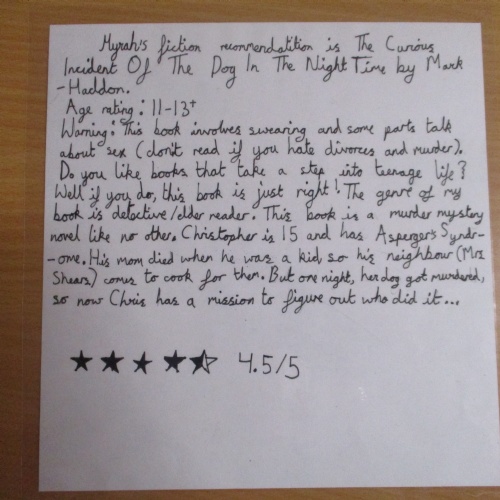 Myrah's fiction recommendatition is The Curious
Incident Of The Dog In The Night Time by Mark
-Haddon.
Age rating: 11-13+
Warning: This book involves swearing and some parts talk
about sex (don't read if you hate divorces and murder).
Do you like books that take a step into teenage life?
Well if you do, this book is just right! The genre of my
book is detective/older reader. This book is a murder mystery
novel like no other. Christopher is 15 and has Asperger's Syndr-
-ome. His mom died when he was a kid, so his neighbour (Mrs
Shears) comes to cook for them. But one night, her dog got murdered,
so now Chris has a mission to figure out who did it...
4.5/5